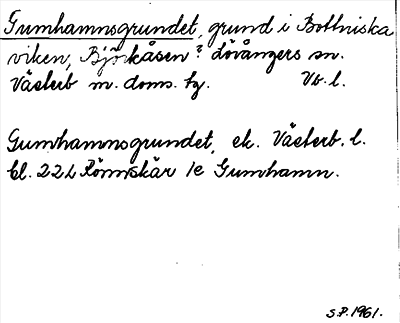 Gumhamnsgrundet, grund i Bottniska
viken, Björkåsen? Lövångers sn.
Västerb m. doms. tg. Vb. l.
Gumhamnsgrundet, ek. Västerb. l.
bl. 22 L Rönnskär 1e Gumhamn.
S.P. 1961.